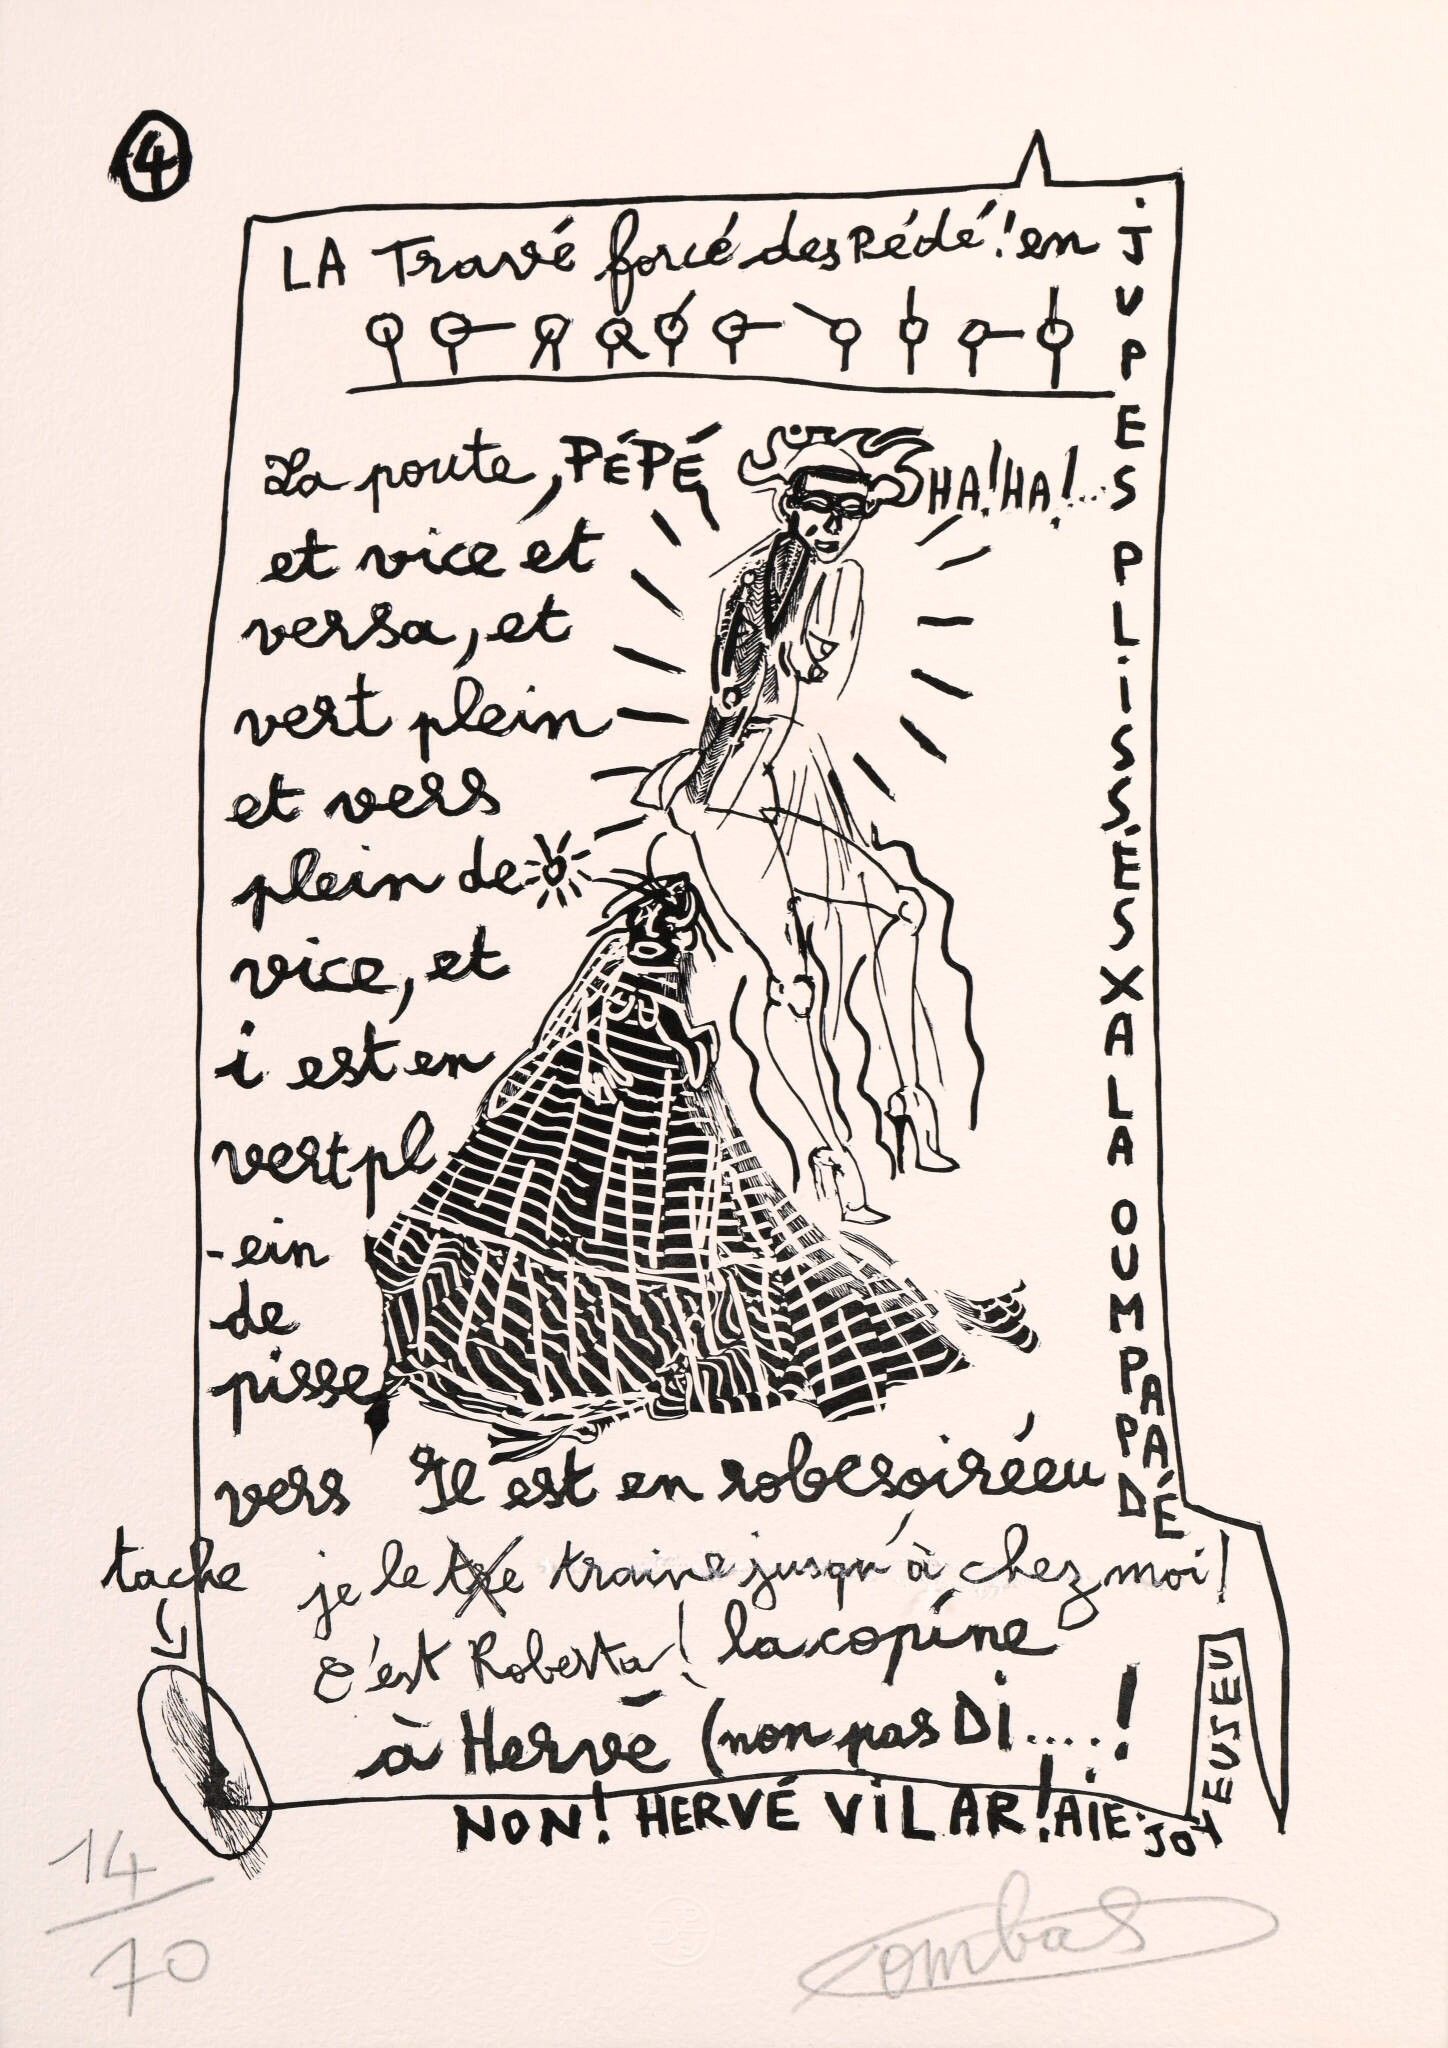 4
LA Travé forcé des Pédé! en
JUPES PLISSÉS X A LA OUMPAPA PADÉ
La poute, PÉPÉ
HA! HA!...
et vice et
versa, et
vert plein
et vers
plein de
vice, et
i est en
vert pl
-ein
de
pisse
vers Il est en robe soirée eu
tache
je le tre traine jusqu'à chez moi!
C'est Roberta! la copine
à Hervé (non pas Di....!
NON! HERVÉ VILAR! AIE.
JOYEUSEU
14/70
Combas